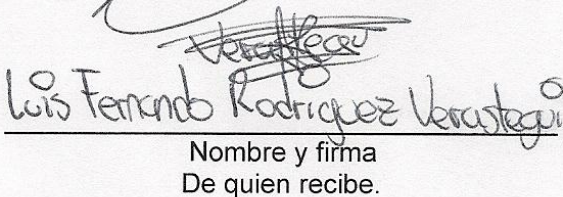 Luis Fernando Rodriguez Verastegui
Nombre y firma
De quien recibe.